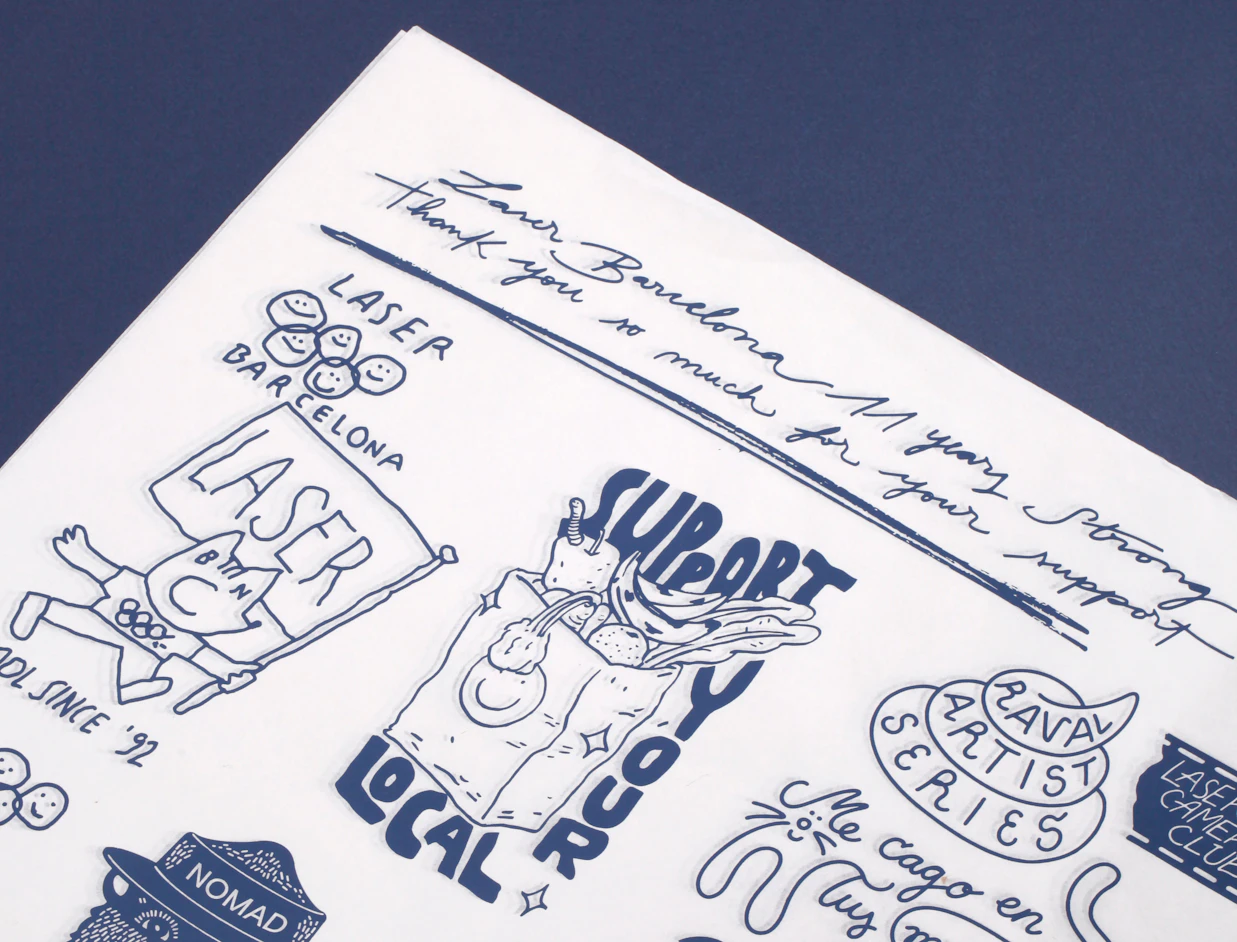 Laser Barcelona 11 years Strong
Thank you so much for your support
LASER
BARCELONA
LASER
BTTN
SINCE '92
SUPPORT
YOUR
LOCAL
RAVAL
ARTIST
SERIES
LASER
CLUB
Me cago en
Tus
NOMAD